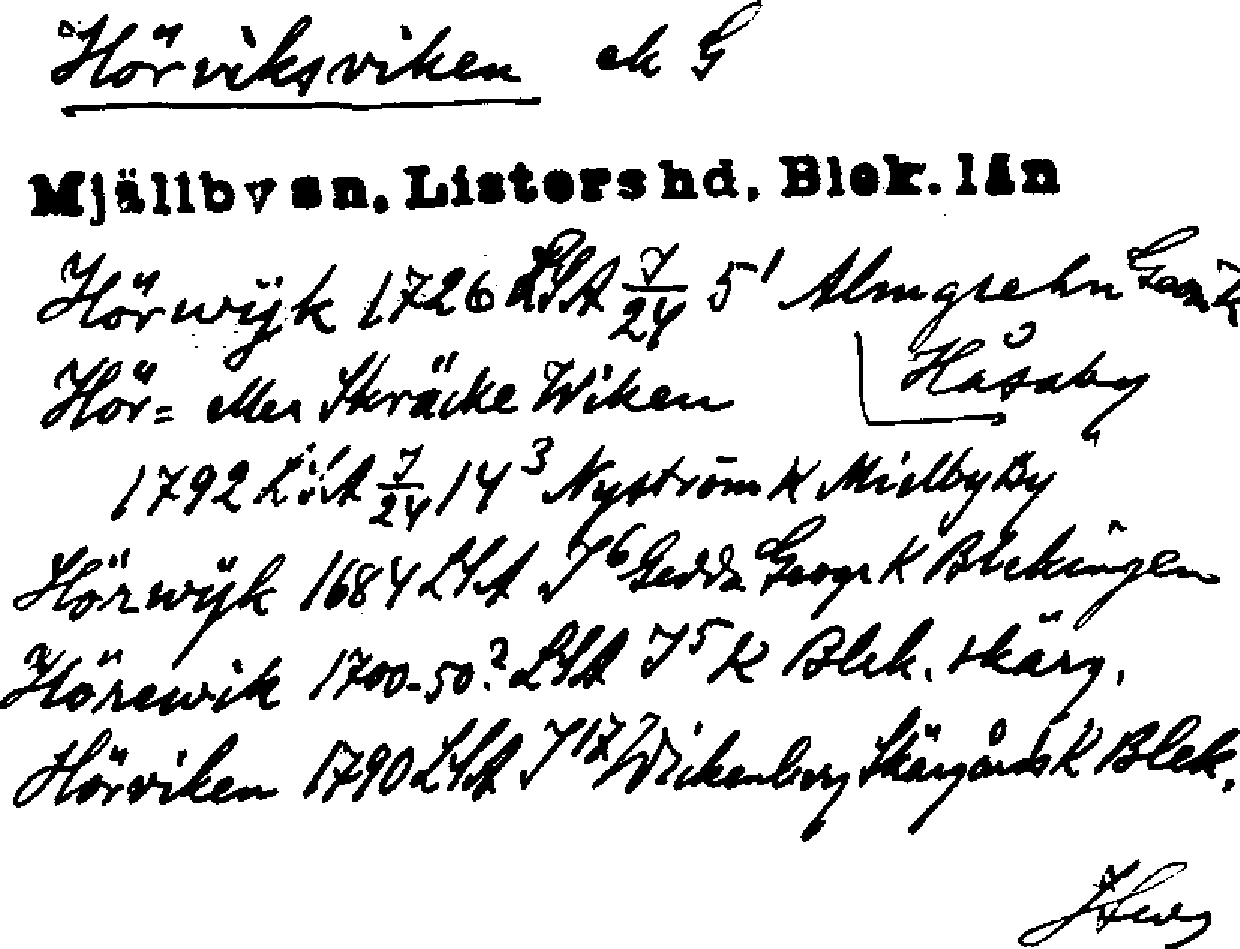 Hörviksviken ek G
Mjällby sn. Listers hd. Blek. län
Hörwijk 1726 LSA 7/24 5¹ Almgrehn
Håsaby
Hör= eller Skräcke Wiken
1792 LSA 7/24 14³ Nyström K Mielby By
Hörwijk 1684 LSA I⁶ Gedda Geogr K Blekingen
Hörewik 1700-50? LSA I⁵ K Blek. skärg.
Hörviken 1790 LSA I¹⁷ Wickenberg Skärgårds K Blek.